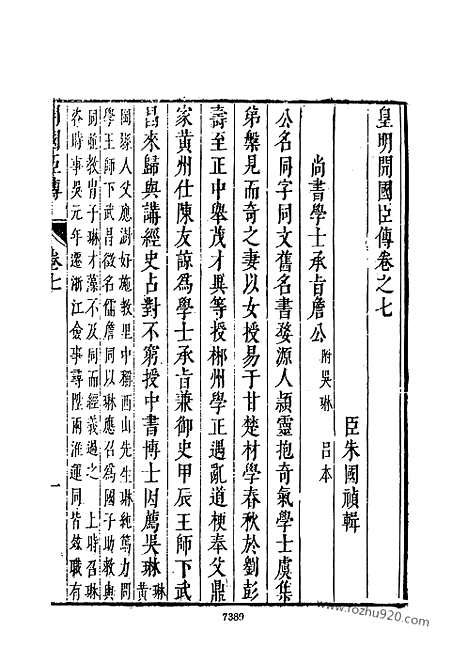 皇明開國臣傳卷之七
臣朱國禎輯
尚書學士承旨詹公 附吳琳 呂本
公名同字同文舊名書婺源人頴靈抱奇氣學士虞集
弟槃見而奇之妻以女授易于甘楚材學春秋於劉彭
壽至正中舉茂才異等授郴州學正遇亂道梗奉父鼎
家黃州仕陳友諒爲學士承旨兼御史甲辰王師下武
昌來歸與講經史占對不窮授中書博士因薦吳琳 琳黃
岡縣人父應澍好施敎里中稱西山先生琳純篤力問
學王師下武昌徵名儒詹同以琳應召爲國子助敎與
同竝敎冑子琳才藻不及同而經義過之 上時召琳
咨時事吳元年遷浙江僉事尋陞兩淮運同皆兹職有
開國臣傳
卷七
一
7389
www.fozhu920.com